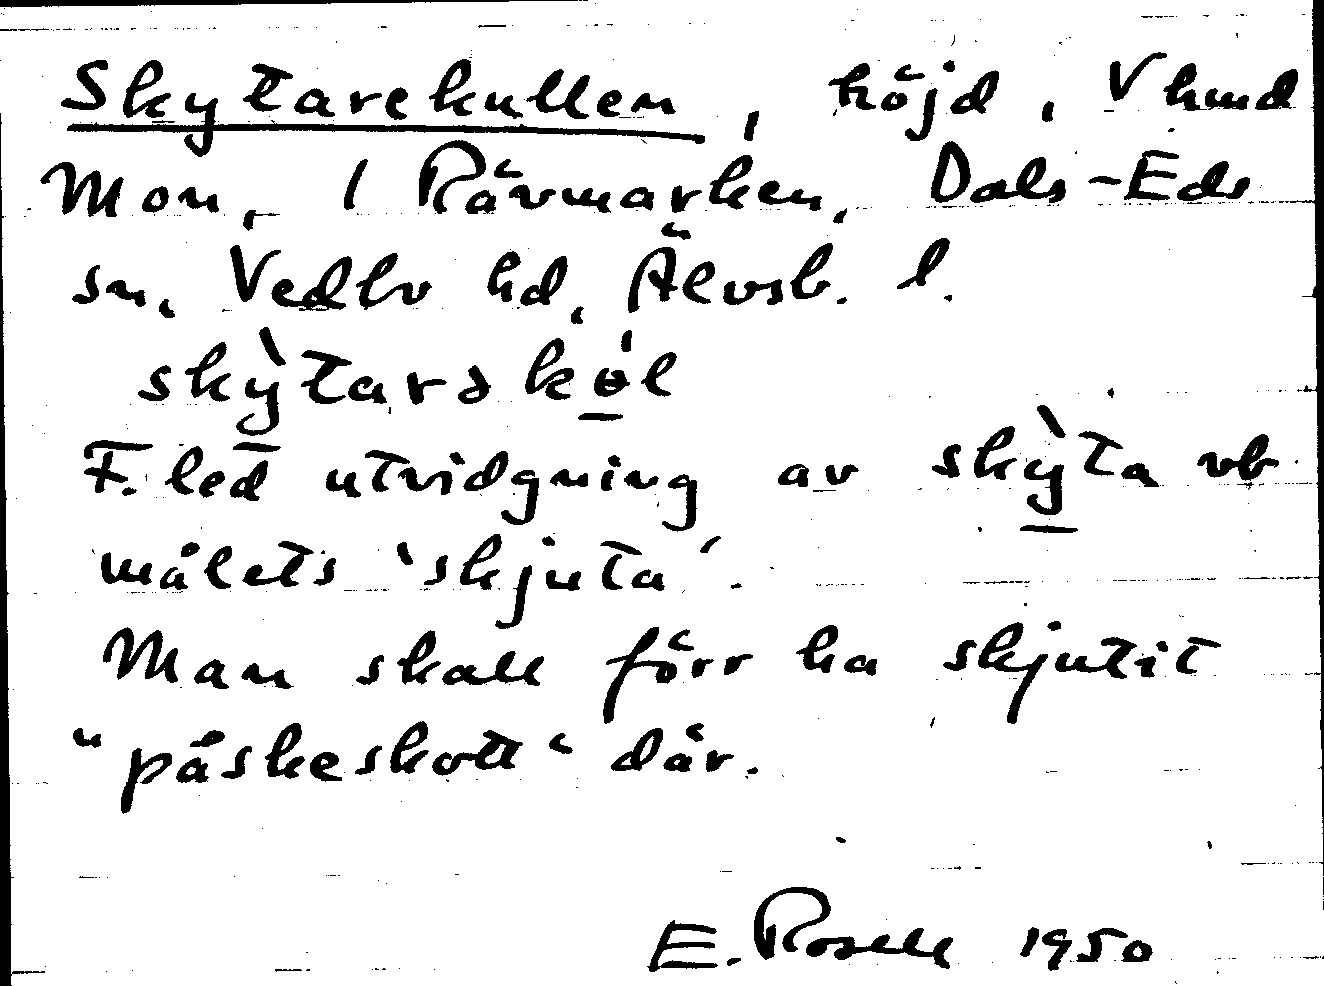 Skytarekullen, höjd, V hmd
Mon, 1 Rävmarken, Dals-Eds
sn, Vedbo hd, Älvsb. l.
skỳtarə kǿ̲l
F. led utvidgning av skỳ̲ta vb
målets 'skjuta'.
Man skall förr ha skjutit
"påskeskott" där.
E. Rosell 1950